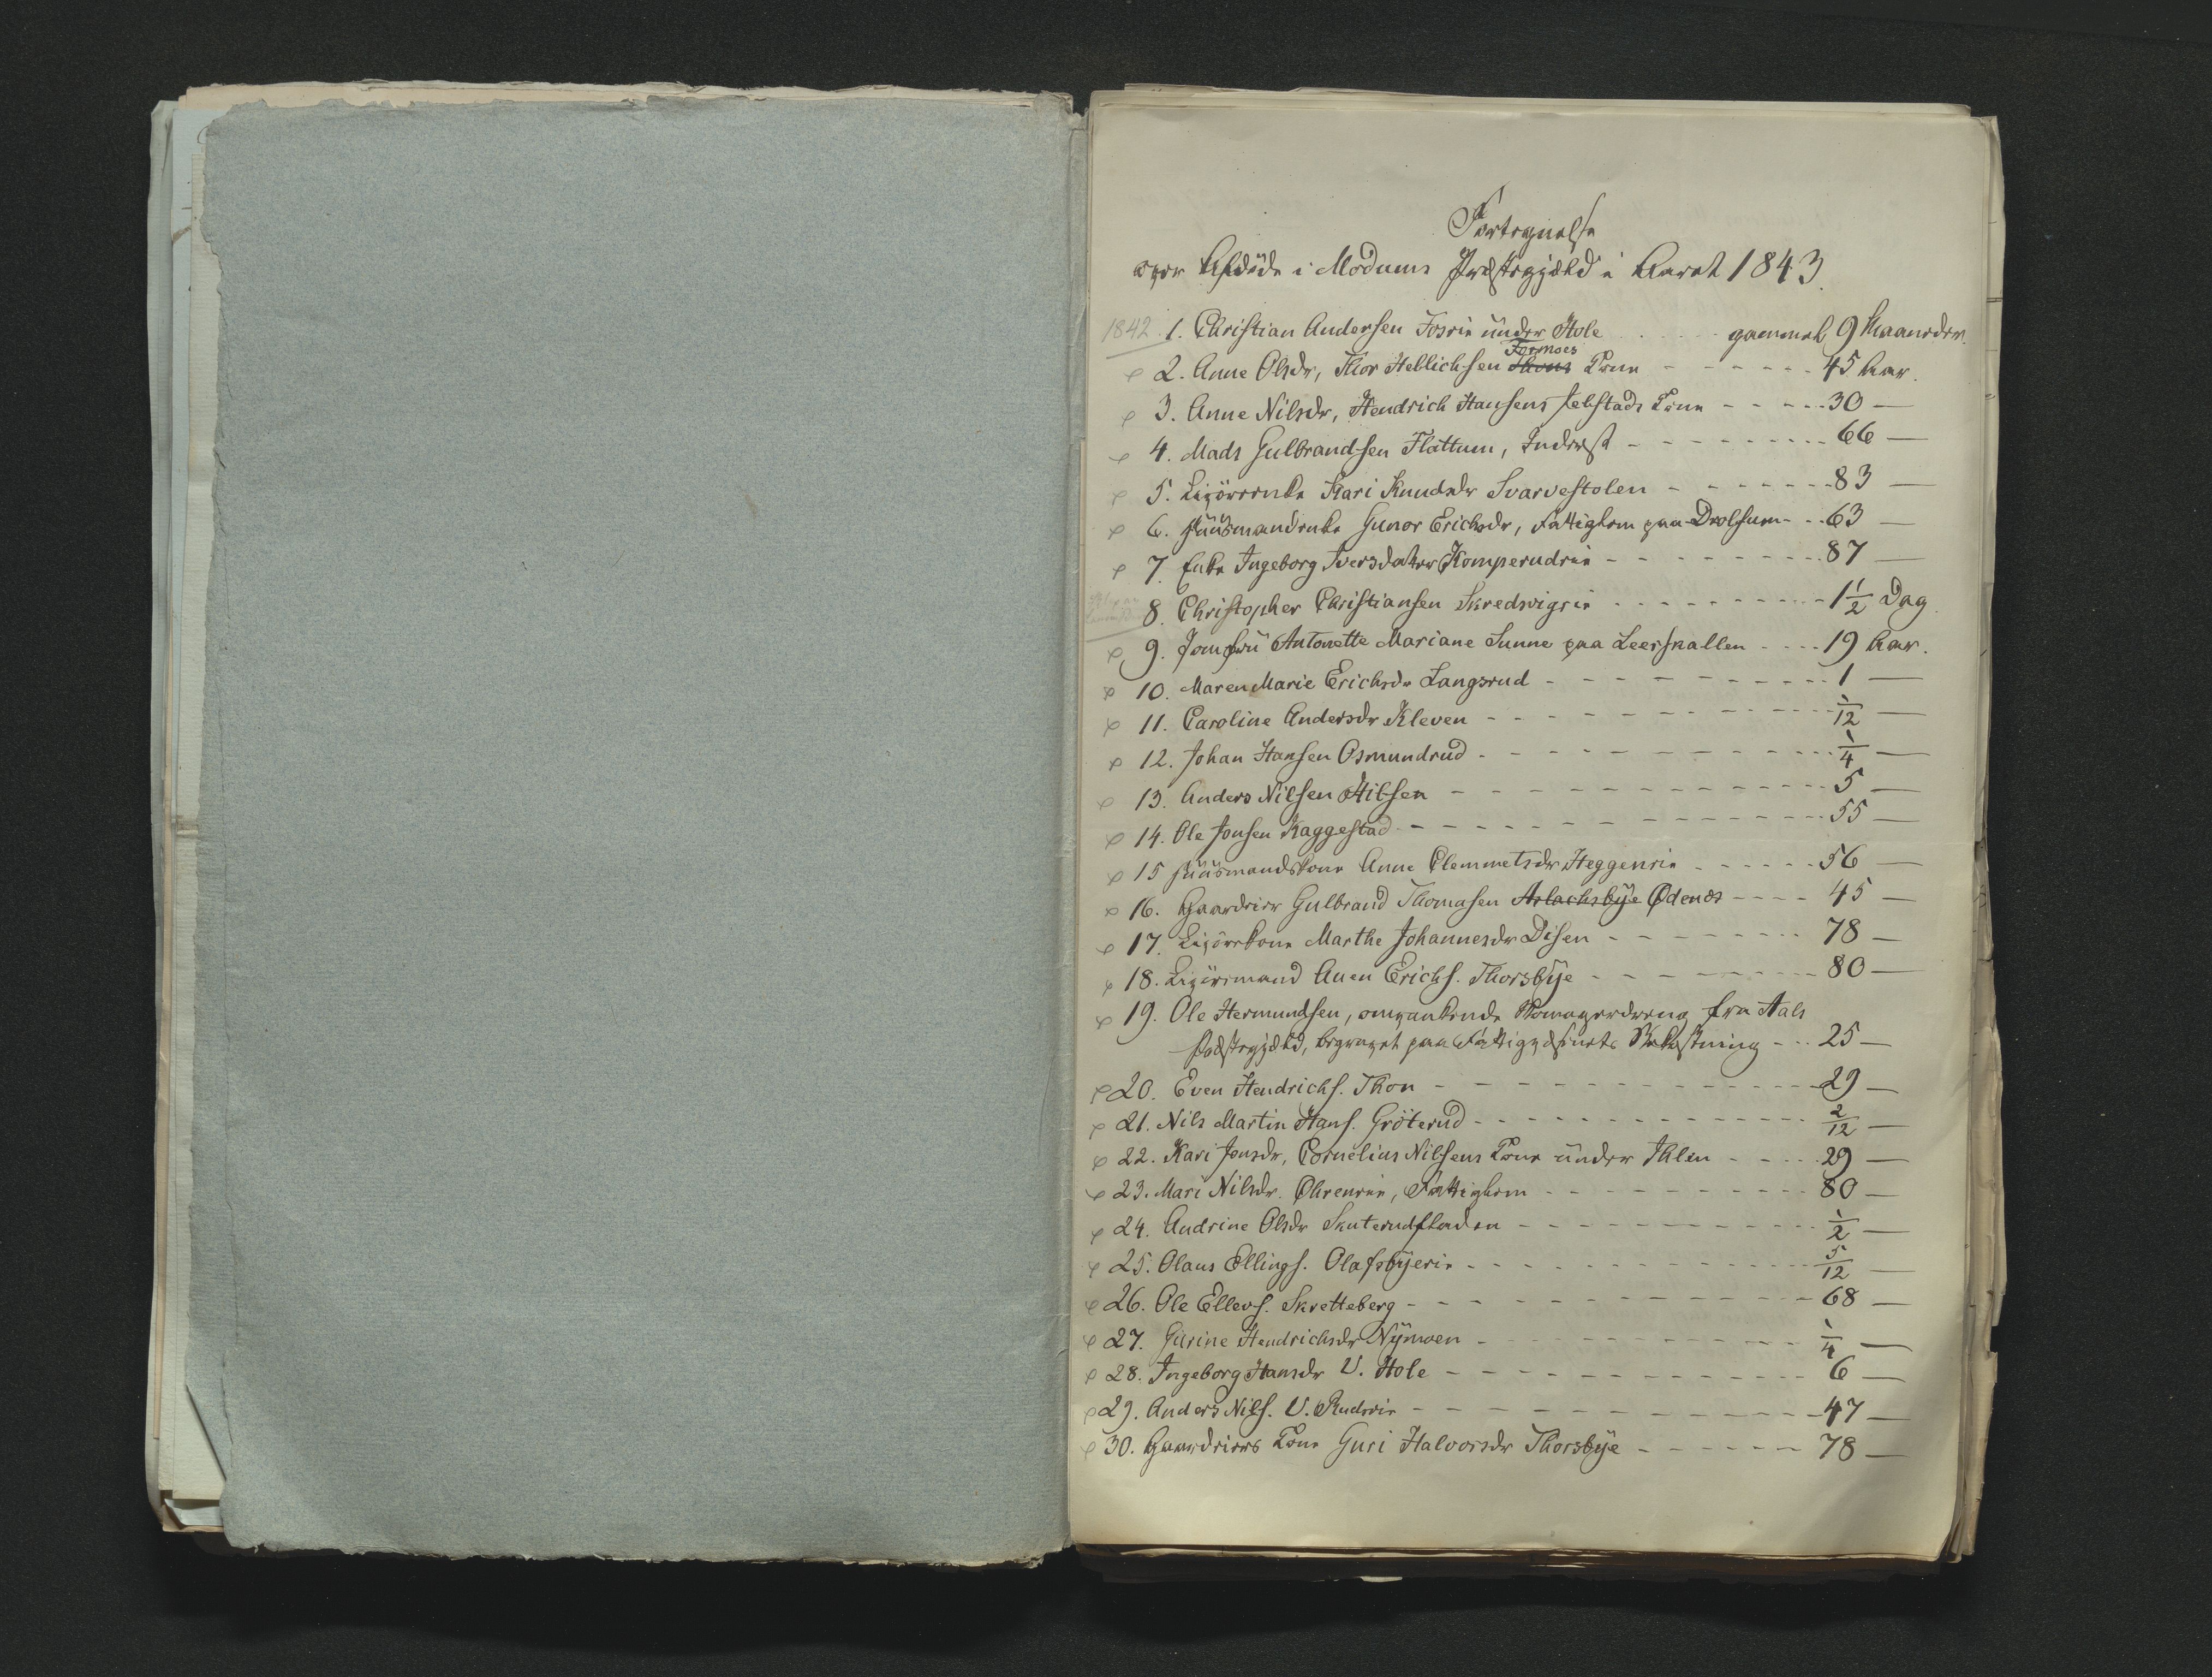 Fortegnelse
over Afdöde i Modums Præstegjæld i Aaret 1843.
1842. 1. Christian Andersen Fosrie under Hole gammel 9 Maaneder.
Formoes
2. Anne Olsdr, Thor Hellichsen Thons Kone 45 Aar.
3. Anne Nilsdr, Hendrich Hansens Kone 30 —
4. Mads Gulbrandsen Flattum, Inderst 66 —
5. Legdsenke Kari Knudsdr Svarvestolen 83 —
6. Huusmandenke Gunor Erichsdr, Fattiglem paa Drolsum 63 —
7. Enke Ingeborg Iversdatter Komperudeie 87 —
8. Christopher Christiansen Skredsvigeie 1 1/2 Dag.
9. Jomfru Antonette Mariane Sunne paa Leerskallen 19 Aar.
10. Maren Marie Erichsdr Langsrud 1 —
11. Caroline Andersdr Kleven 1/12 —
12. Johan Hansen Osmundrud 1/4 —
13. Anders Nilsen Hilsen 5 —
14. Ole Jonsen Kaggestad 55 —
15 Huusmandskone Anne Clemmetsdr Heggenrie 56 —
16. Gaardeier Gulbrand Thomasen Aslachsbye Ødenes 45 —
17. Marthe Johannesdr Disen 78 —
18. Auen Erichs. Thorsbye 80 —
19. Ole Hermundsen, omvankende fra Aals
Præstegjæld, begravet paa Fattigvæsenets Bekostning 25 —
20. Even Hendrichs. Thon 29 —
21. Nils Martin Hans. Gröterud 2/12 —
22. Kari Jensdr, Cornelius Nilsens Kone under Ihlen 29 —
23. Mari Nilsdr. Ohreneie, Fattiglem 80 —
24. Andrine Olsdr Skuterudfladen 1/2 —
25. Olaus Ellings. Olafsbyeeie 5/12 —
26. Ole Ellevs. Skretteberg 68 —
27. Gurine Hendrichsdr Nymoen 1/4 —
28. Ingeborg Hansdr V. Hole 6 —
29. Anders Nils. V. Rudeeie 47 —
30. Gaardeiers Kone Guri Halvorsdr Thorsbye 78 —